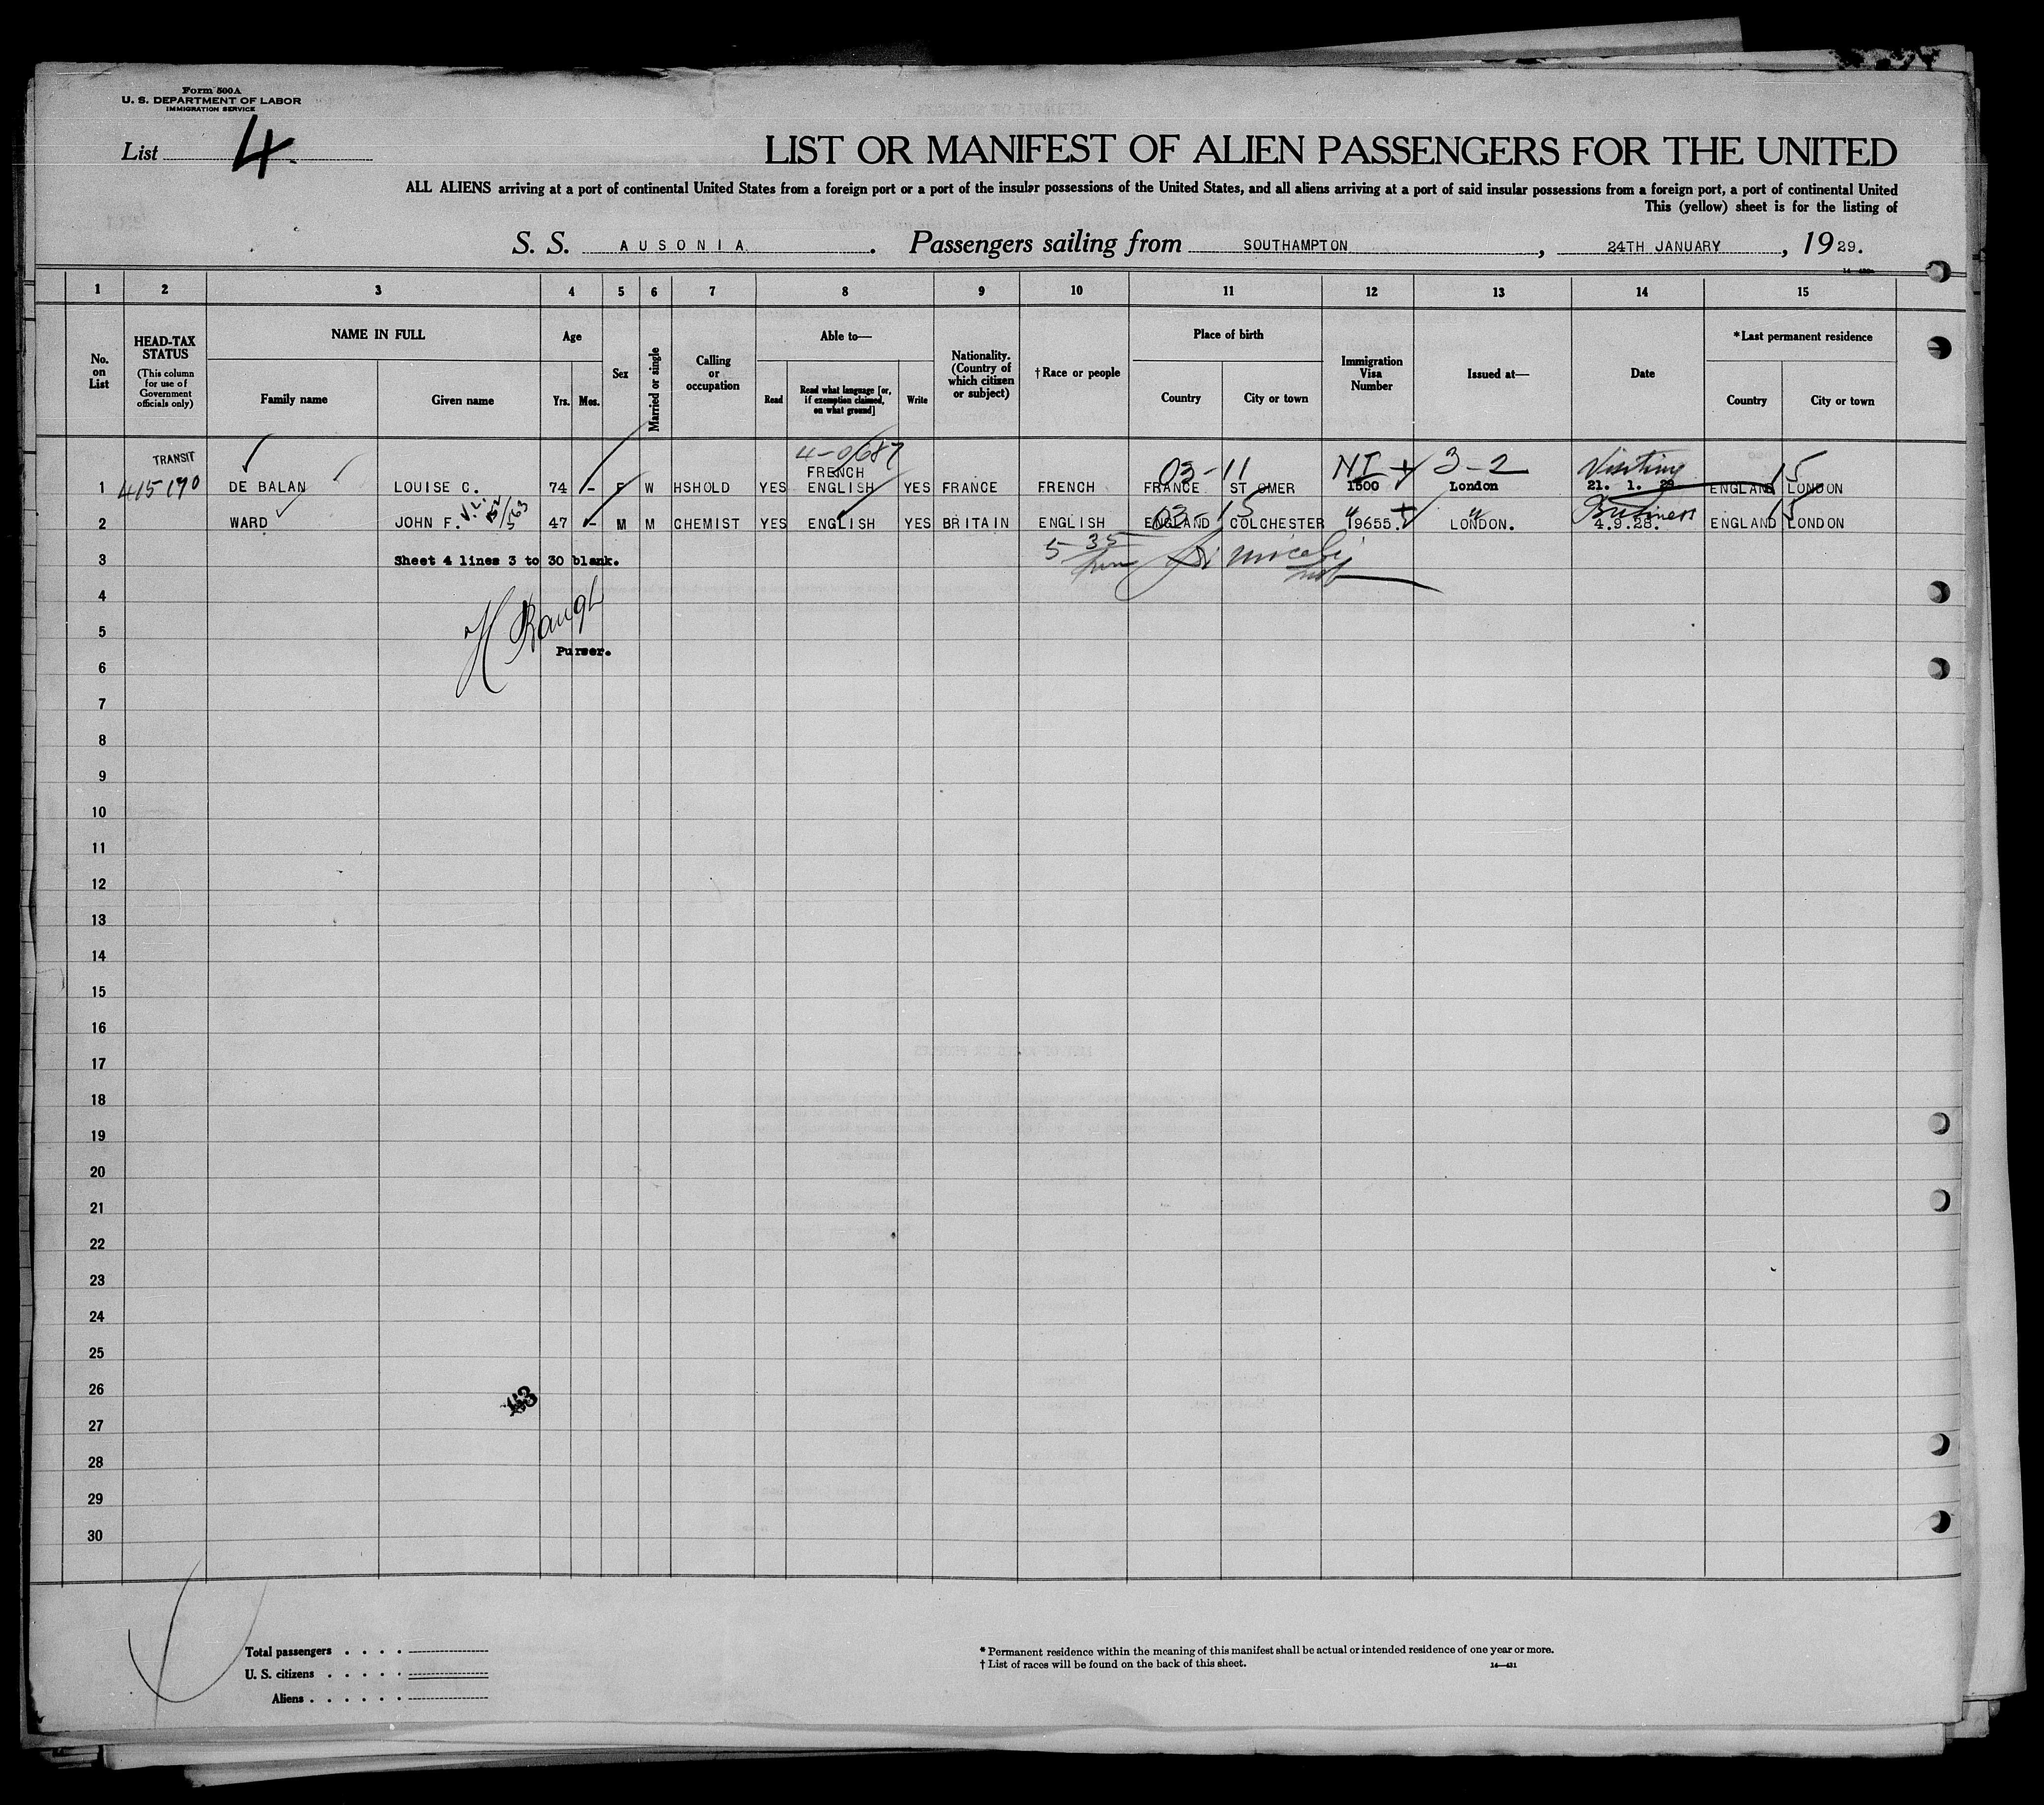 Form 500A
U. S. DEPARTMENT OF LABOR
IMMIGRATION SERVICE
List 4
LIST OR MANIFEST OF ALIEN PASSENGERS FOR THE UNITED
ALL ALIENS arriving at a port of continental United States from a foreign port or a port of the insular possessions of the United States, and all aliens arriving at a port of said insular possessions from a foreign port, a port of continental United
This (yellow) sheet is for the listing of
S. S. AUSONIA. Passengers sailing from SOUTHAMPTON, 24TH JANUARY, 1929.
1 2 3 4 5 6 7 8 9 10 11 12 13 14 15
No. on List
HEAD-TAX STATUS
(This column for use of Government officials only)
NAME IN FULL
Family name
Given name
Age
Yrs. Mos.
Sex
Married or single
Calling or occupation
Able to—
Read
Read what language [or, if exemption claimed, on what ground]
Write
Nationality. (Country of which citizen or subject)
†Race or people
Place of birth
Country
City or town
Immigration Visa Number
Issued at—
Date
*Last permanent residence
Country
City or town
TRANSIT 4-0687 FRENCH 03-11 NI 3-2 Visiting 15
1 415190 DE BALAN LOUISE C. 74 - F W HSHOLD YES ENGLISH YES FRANCE FRENCH FRANCE ST OMER 1500 London 21. 1. 29 ENGLAND LONDON
03-15 " " Business 15
2 WARD JOHN F. 47 - M M CHEMIST YES ENGLISH YES BRITAIN ENGLISH ENGLAND COLCHESTER 19655. LONDON. 4.9.28. ENGLAND LONDON
5 35
3 Sheet 4 lines 3 to 30 blank.
4
5 H Baugh
Purser.
6
7
8
9
10
11
12
13
14
15
16
17
18
19
20
21
22
23
24
25
26
27
28
29
30
Total passengers
U. S. citizens
Aliens
* Permanent residence within the meaning of this manifest shall be actual or intended residence of one year or more.
† List of races will be found on the back of this sheet.
14—431